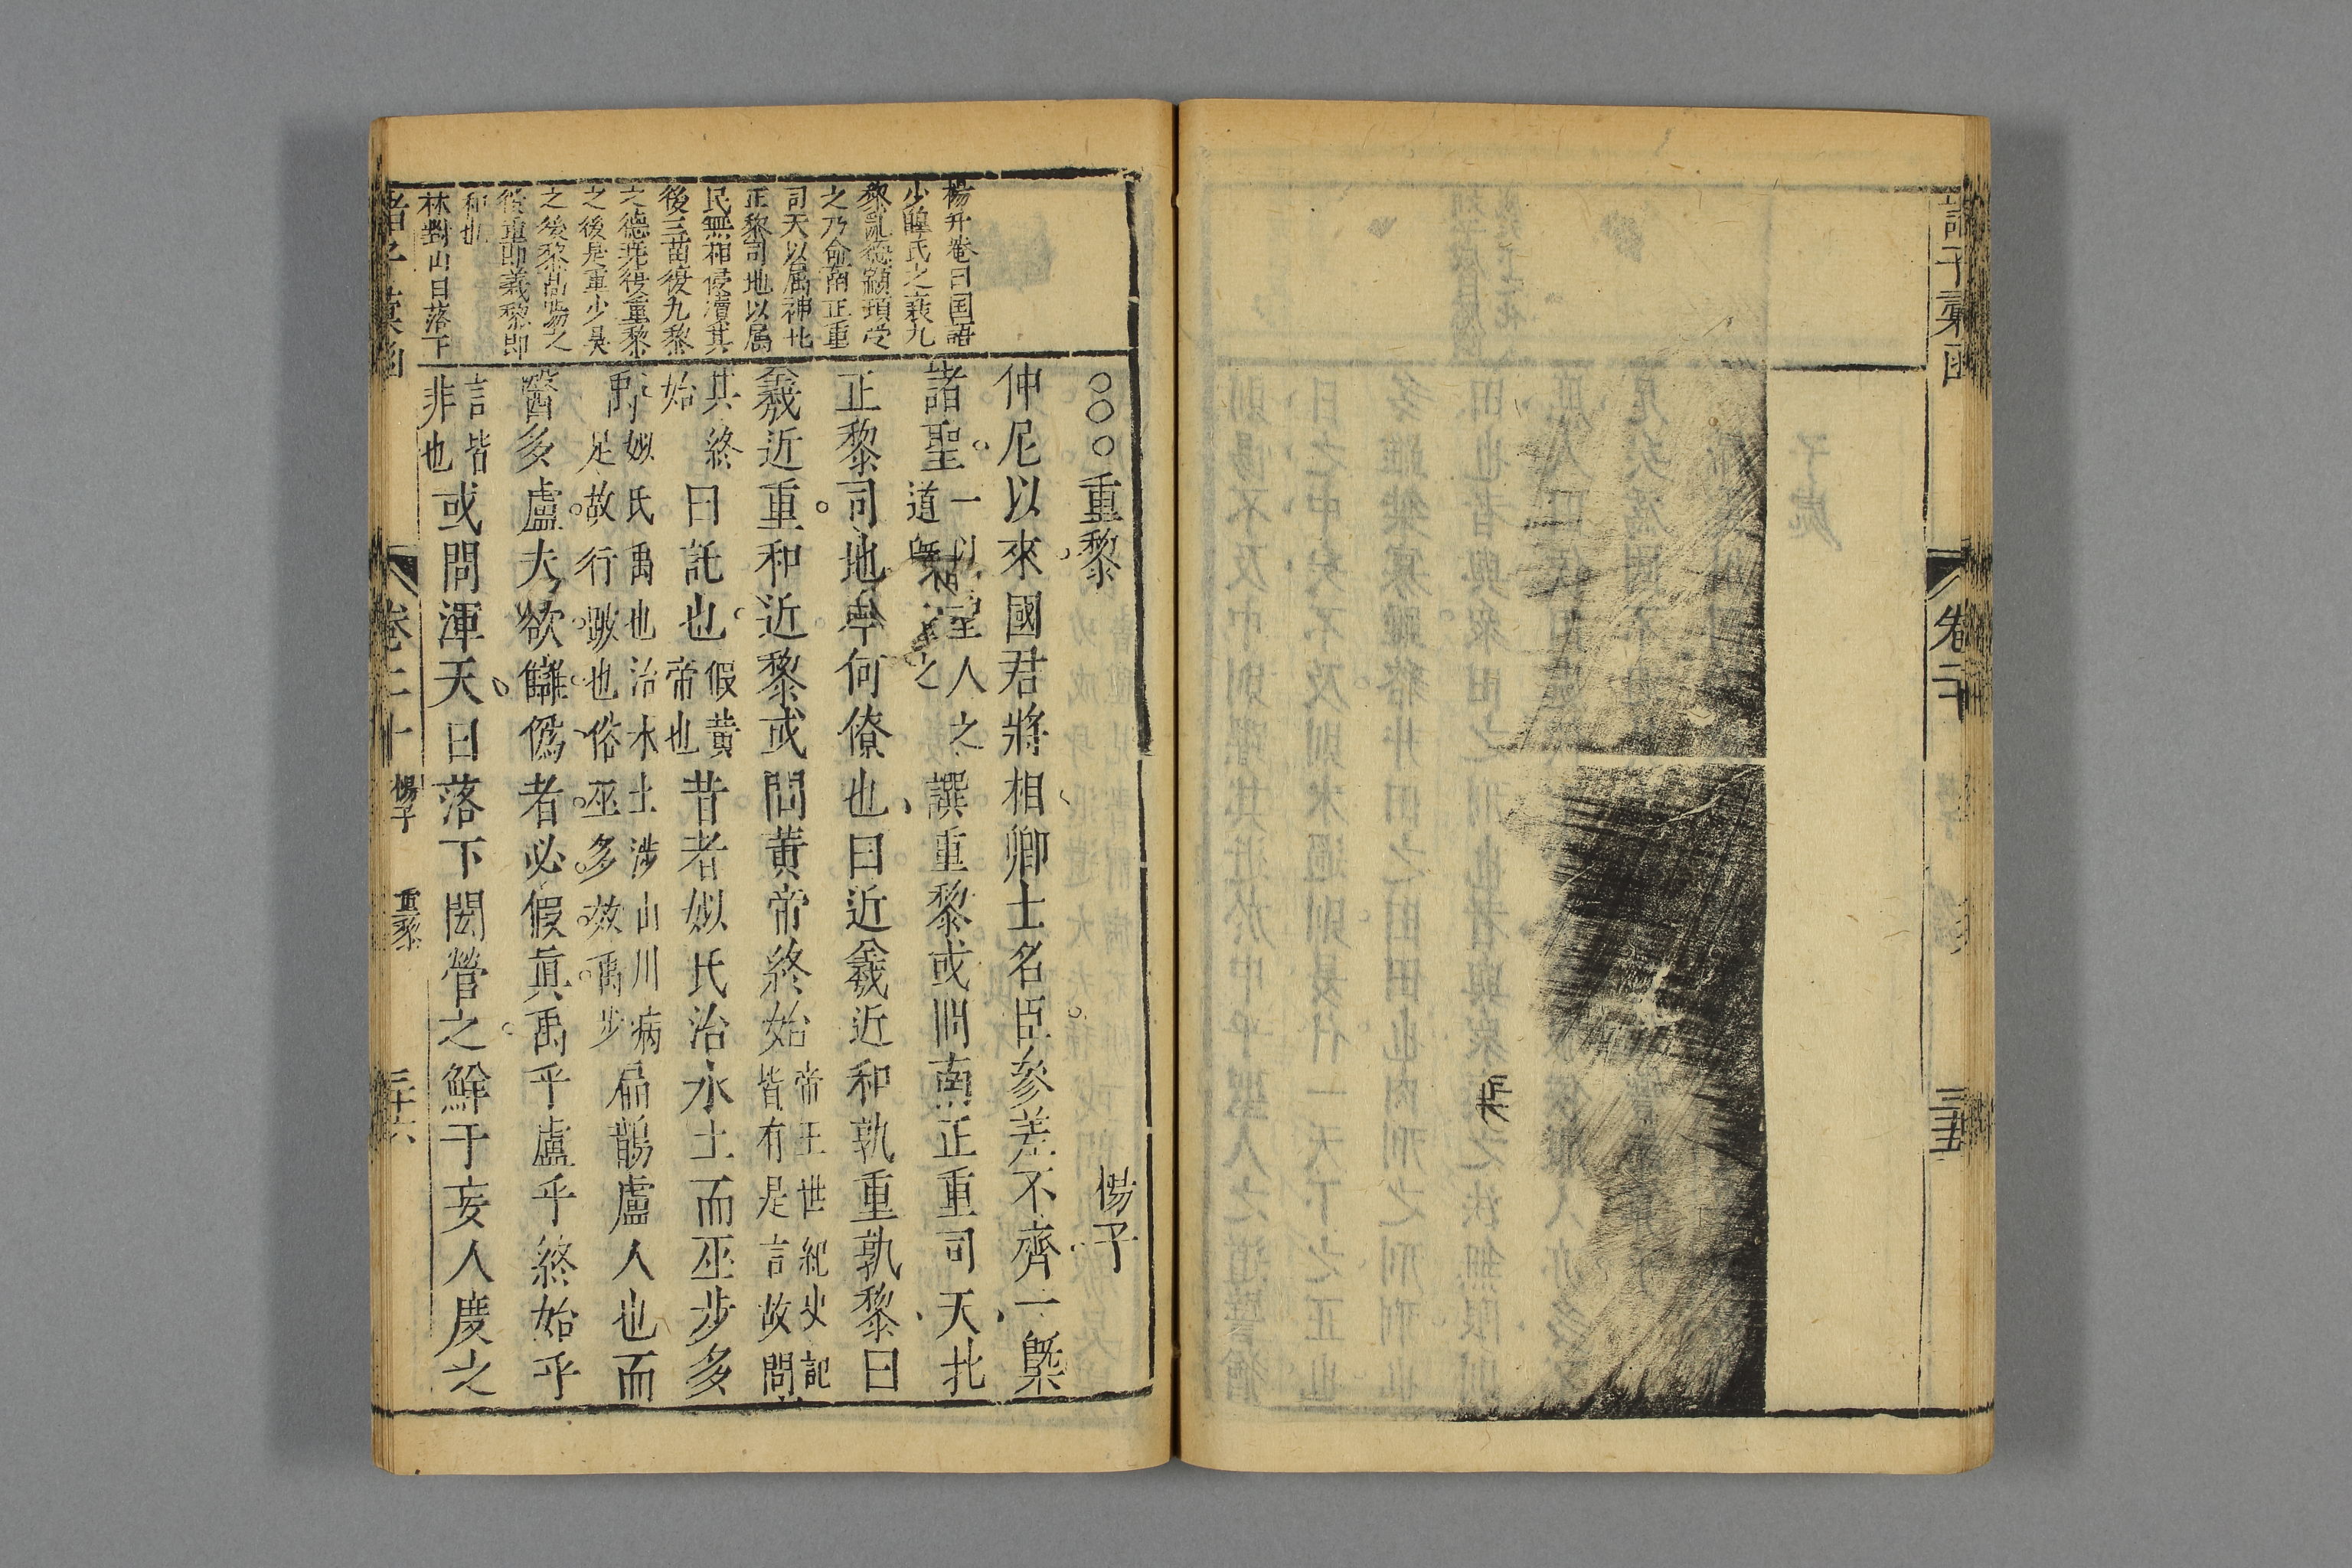 諸子彙函
卷二十
三十五
楊升菴曰国語
少皥氏之衰九
黎亂德顓頊受
之乃命南正重
司天以属神北
正黎司地以属
民無相侵瀆其
後三苗復九黎
之德堯復重黎
之後是重少昊
之後黎高陽之
後重即羲黎即
和也
林對山曰落下
○○○重黎
楊子
仲尼以來國君將相卿士名臣參差不齊一槩
諸聖
一以聖人之
道槩之
譔重黎或問南正重司天北
正黎司地今何僚也曰近羲近和孰重孰黎曰
羲近重和近黎或問黃帝終始
帝王世紀史記
皆有是言故問
其終
始
曰託也
假黃
帝也
昔者姒氏治水土而巫步多
禹
姒氏禹也治水土涉山川病
足故行跛也俗巫多效禹步
扁鵲盧人也而
醫多盧夫欲讎僞者必假眞禹乎盧乎終始乎
言皆
非也
或問渾天曰落下閎營之鮮于妄人度之
諸子彙函
卷二十
楊子
重黎
三十六